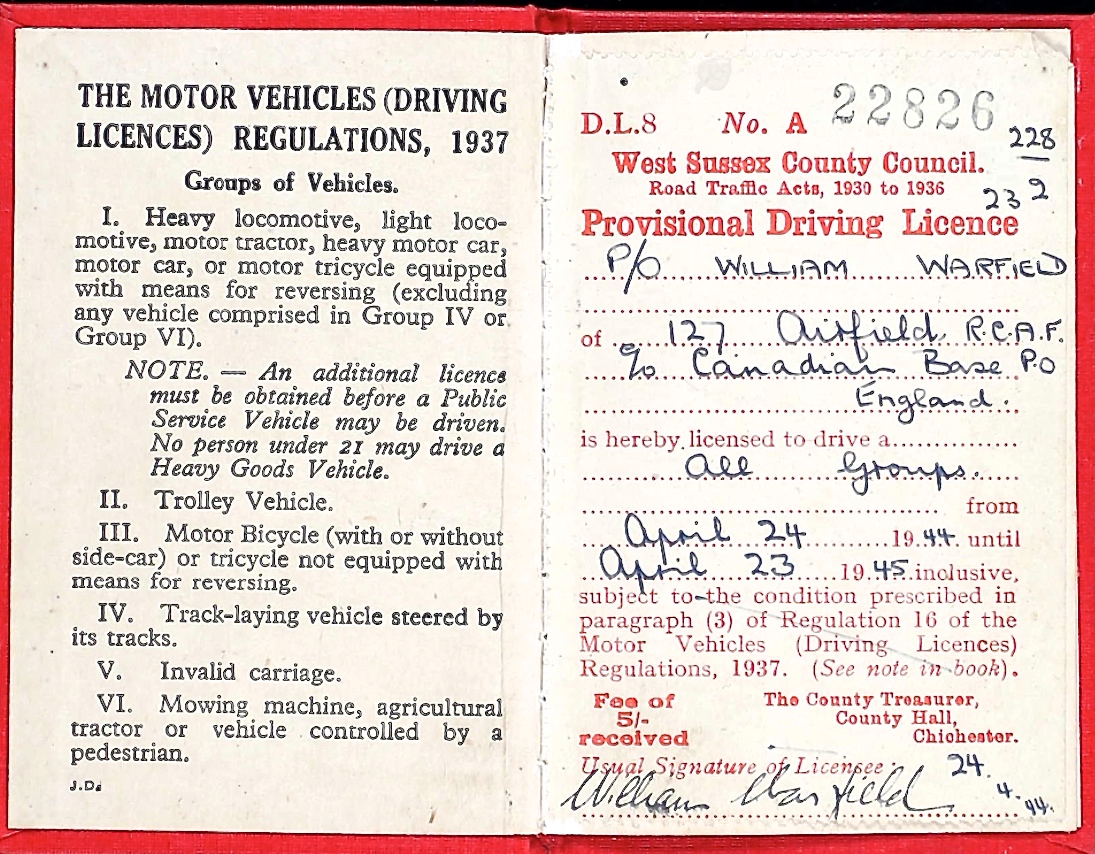 THE MOTOR VEHICLES (DRIVING
LICENCES) REGULATIONS, 1937
Groups of Vehicles.
I. Heavy locomotive, light loco-
motive, motor tractor, heavy motor car,
motor car, or motor tricycle equipped
with means for reversing (excluding
any vehicle comprised in Group IV or
Group VI).
NOTE. — An additional licence
must be obtained before a Public
Service Vehicle may be driven.
No person under 21 may drive a
Heavy Goods Vehicle.
II. Trolley Vehicle.
III. Motor Bicycle (with or without
side-car) or tricycle not equipped with
means for reversing.
IV. Track-laying vehicle steered by
its tracks.
V. Invalid carriage.
VI. Mowing machine, agricultural
tractor or vehicle controlled by a
pedestrian.
J.D.
D.L.8 No. A 22826
228
West Sussex County Council.
Road Traffic Acts, 1930 to 1936
232
Provisional Driving Licence
P/O WILLIAM WARFIELD
of 127 Airfield, R.C.A.F.
c/o Canadian Base P.O
England.
is hereby licensed to drive a
All Groups.
from
April 24 1944 until
April 23 1945 inclusive,
subject to the condition prescribed in
paragraph (3) of Regulation 16 of the
Motor Vehicles (Driving Licences)
Regulations, 1937. (See note in book).
Fee of
5/-
received
The County Treasurer,
County Hall,
Chichester.
Usual Signature of Licensee: 24.4.44.
William Warfield